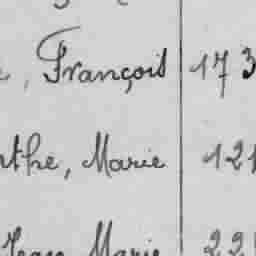 , François 173
the, Marie 121
Jean Marie 22